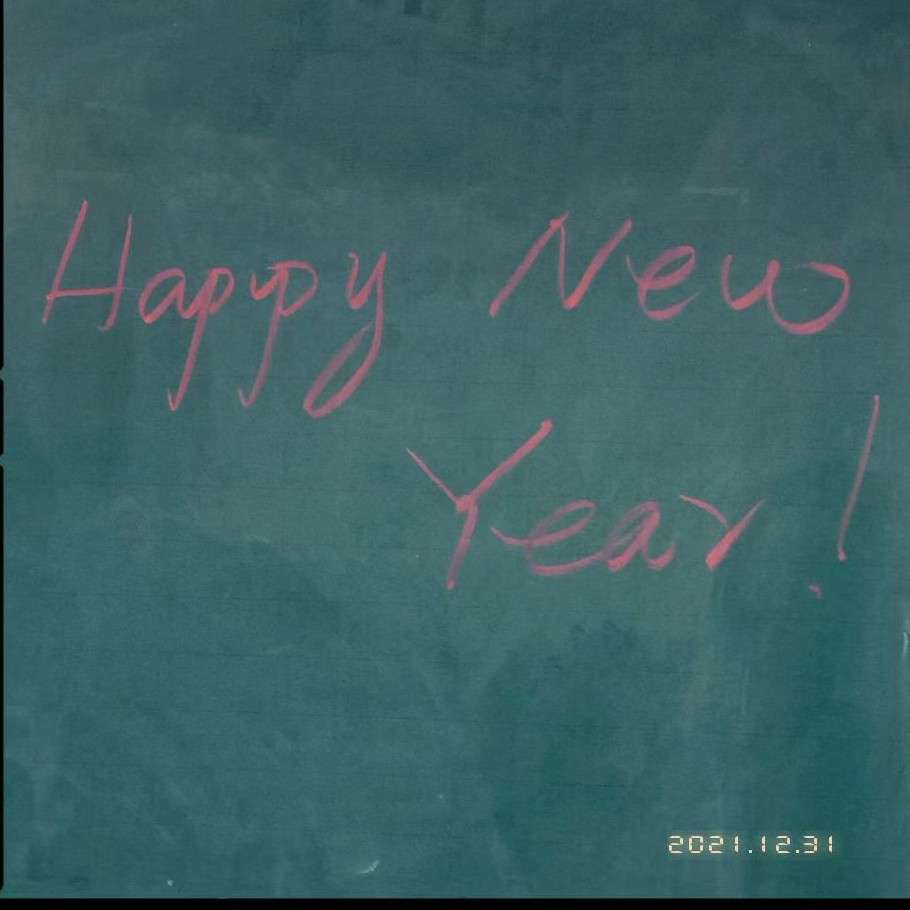 Happy New
Year!
2021.12.31